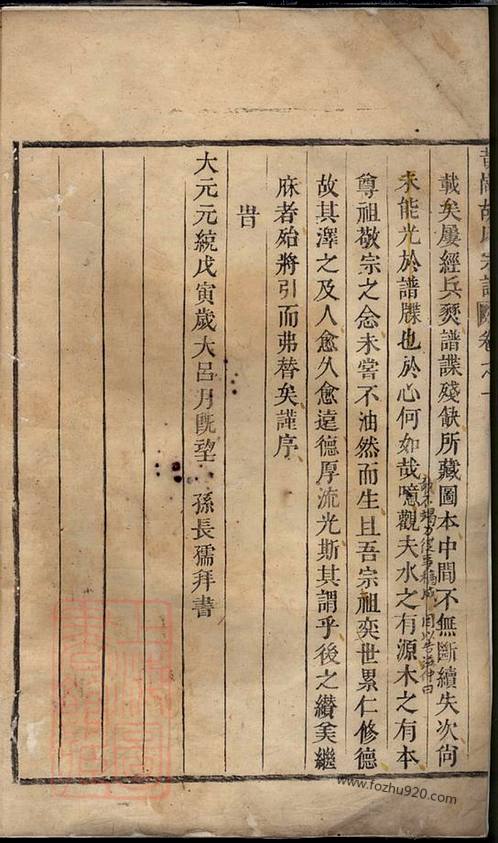 載矣屢經兵燹譜諜殘缺所藏圖本中間不無斷續失次尙
未能光於譜牒也於心何如哉噫觀夫水之有源木之有本
尊祖敬宗之念未嘗不油然而生且吾宗祖奕世累仁修德
故其澤之及人愈久愈遠德厚流光斯其謂乎後之纘美繼
庥者殆將引而弗替矣謹序
旹
大元元統戊寅歲大呂月旣望 孫長孺拜書
www.fozhu920.com